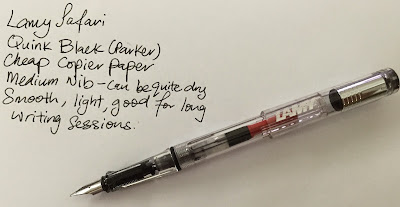 Lamy Safari
Quink Black (Parker)
Cheap Copier paper
Medium Nib - Can be quite dry
Smooth, light, good for long
writing sessions.
LAMY